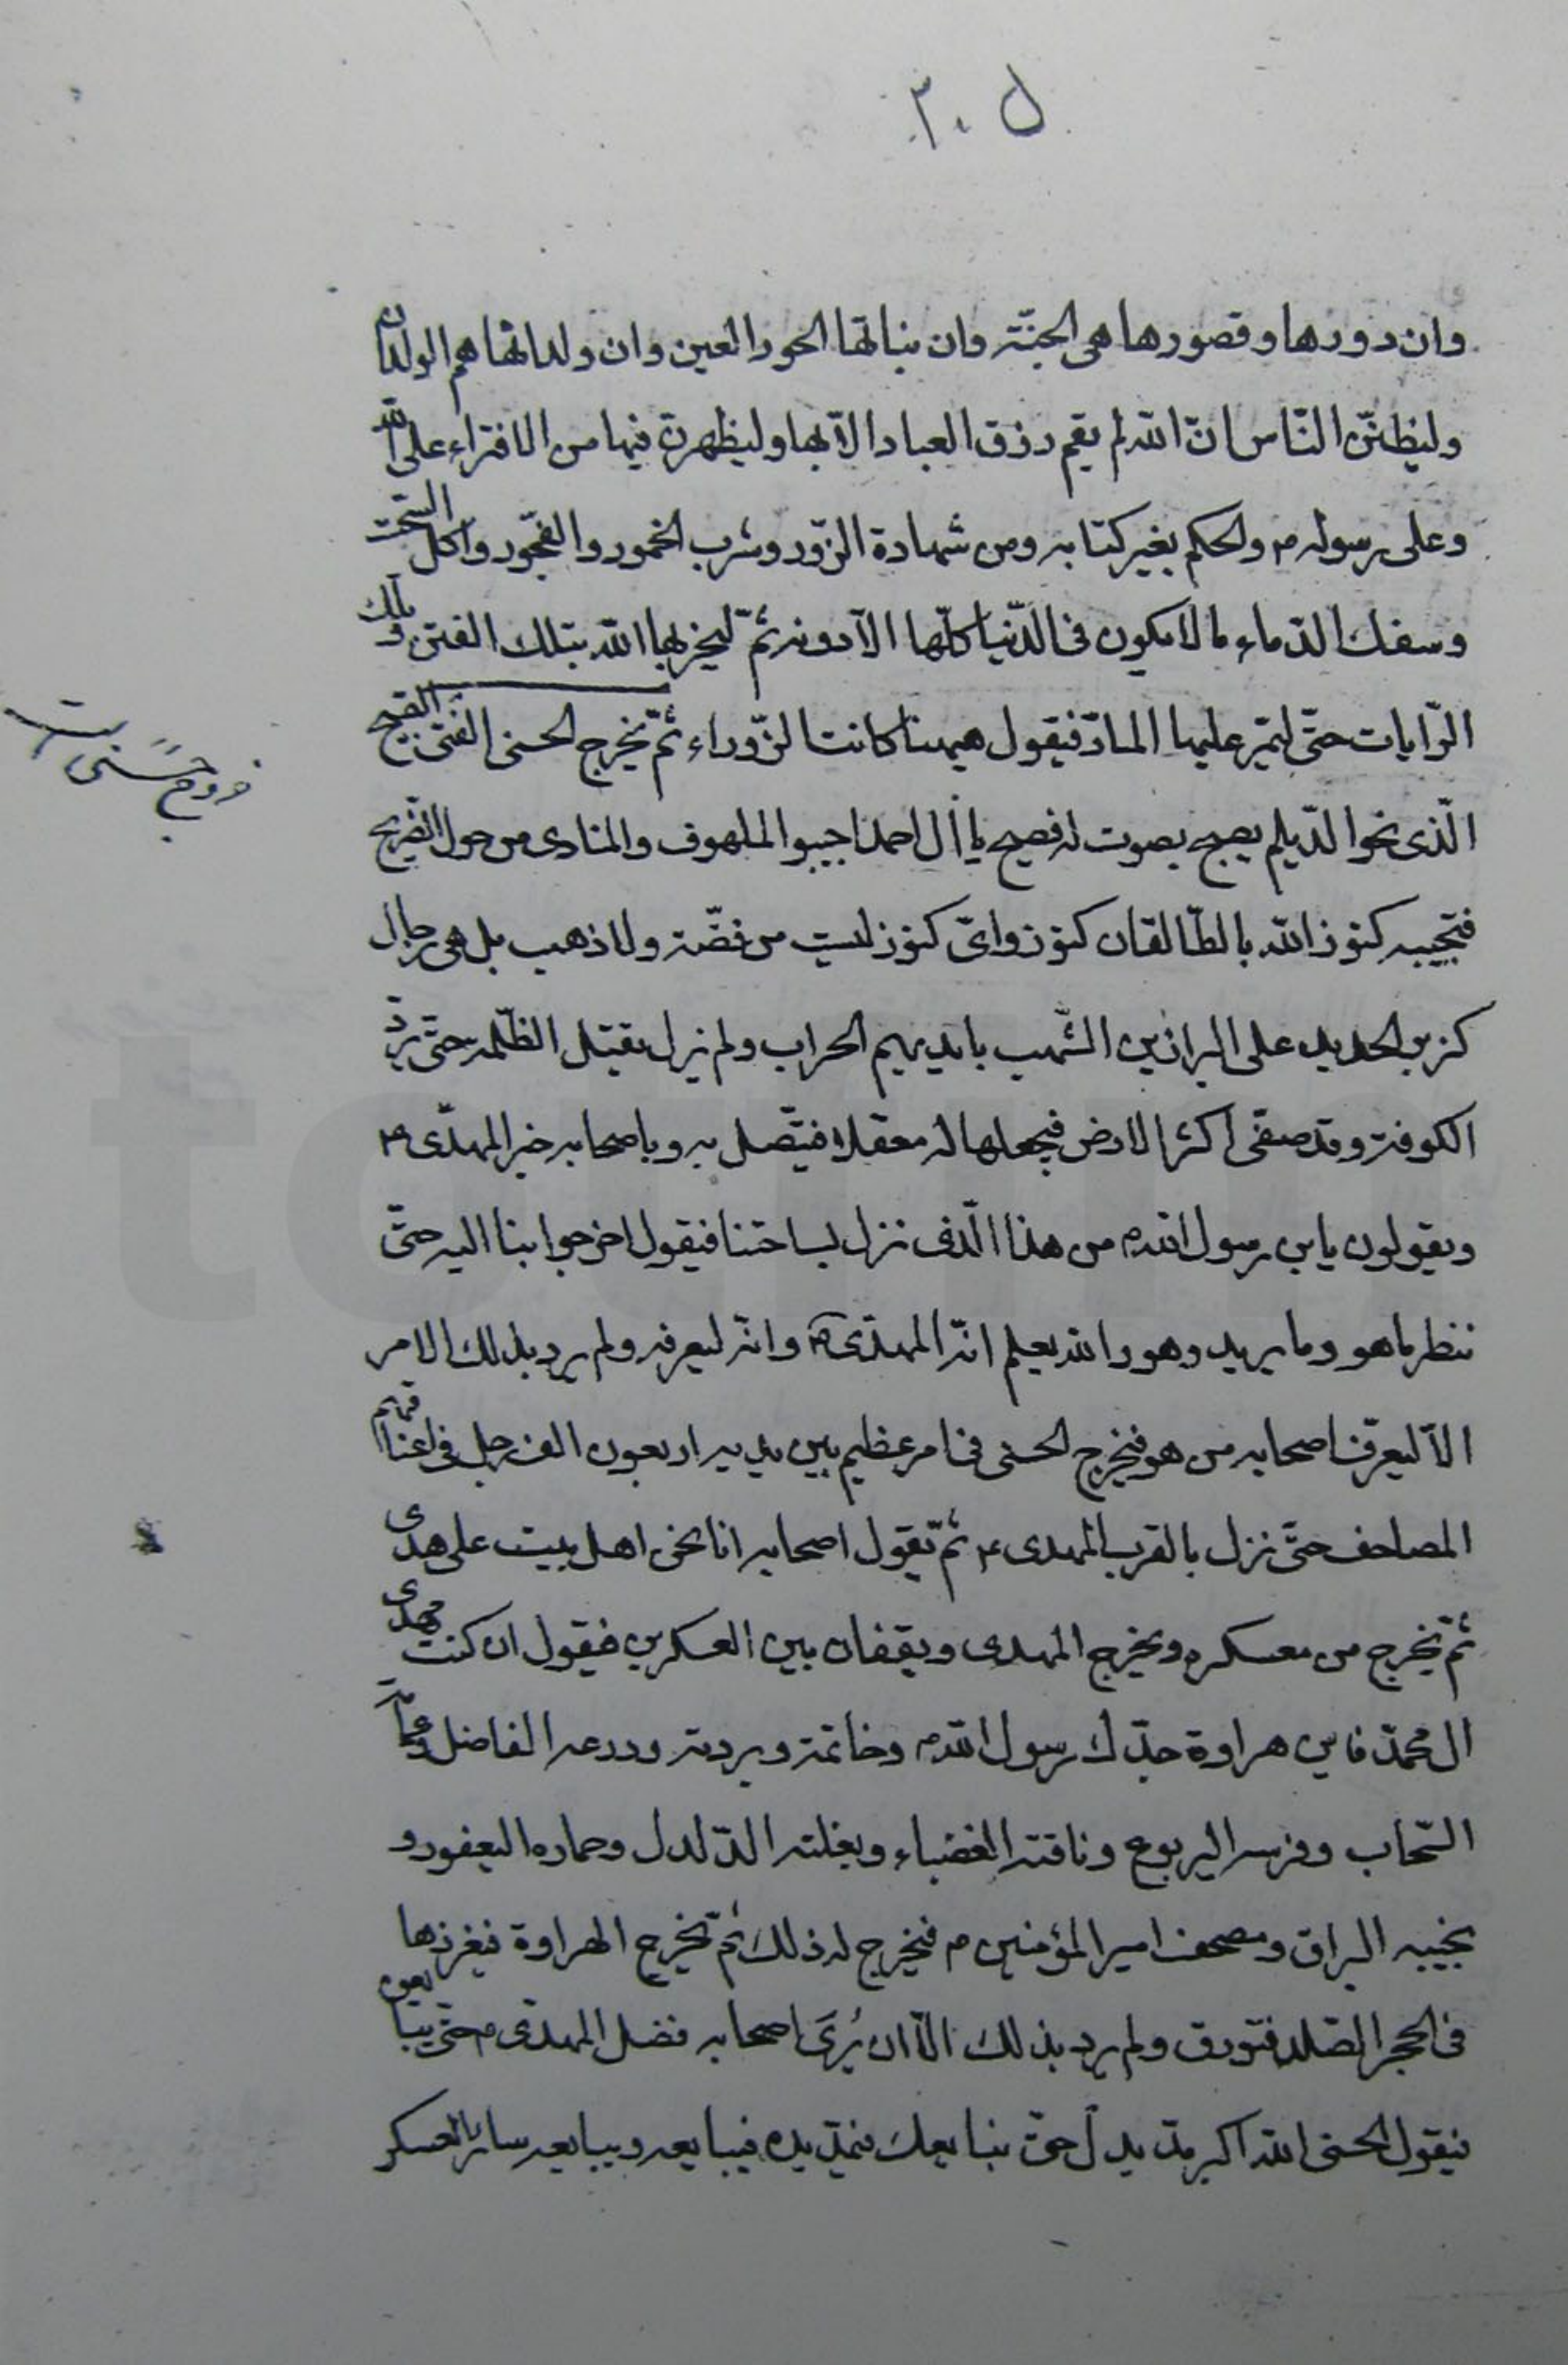 ٣٠٥
وان دورها وقصورها هى الجنّة وان بناتها الحور العين وان ولدانها هم الولدان
وليظنّن النّاس انّ الله لم يقم رزق العباد الّا بها وليظهرن فيها من الافتراء على الله
وعلى رسوله ص والحكم بغير كتابه ومن شهادة الزّور وشرب الخمور والفجّور واكل السّحت
وسفك الدّماء ما لا يكون فى الدّنيا كلّها الّا دونه ثمّ ليخربها الله بتلك الفتن وتلك
الرّايات حتّى ليمّر عليها المارّ فيقول هيهنا كانت الزّوراء ثمّ يخرج الحسنى الفتى الصّبيح
الّذى نحو الدّيلم يصيح بصوت له فصيح يا أل احمد اجيبوا الملهوف والمنادى من حول الضّريح
فتجيبه كنوز الله بالطّالقان كنوز واىّ كنوز ليست من فضّة ولا ذهب بل هى رجال
كزبر الحديد على البراذين الشّهب بايديهم الحراب ولم يزل يقتل الظّلمة حتّى يرد
الكوفة وقد صفى اكثر الارض فيجعلها له معقلا فيتّصل به وباصحابه خبر المهدّى ع
ويقولون يابن رسول الله ص من هذا الّذى نزل بساحتنا فيقول اخرجوا بنا اليه حتّى
ننظر ما هو وما يريد وهو والله يعلم انّه المهدّى ع وانّه ليعرفه ولم يرد بذلك الامر
الّا ليعرّف اصحابه من هو فيخرج الحسنى فى امر عظيم بين يديه اربعون الف رجل فى اعناقهم
المصاحف حتّى نزل بالقرب المهدى ع ثمّ يقول اصحابه انا نحن اهل بيت على هدى
ثمّ يخرج من معسكره ويخرج المهدى ويقفان بين العسكرين فيقول ان كنت مهدى
ال محمّد فاين هراوة جدّك رسول الله ص وخاتمه وبردته ودرعه الفاضل وعمامته
السّحاب وفرسه اليربوع وناقته الغضباء وبغلته الدّلدل وحماره اليعفور و
نجيبه البراق ومصحف امير المؤمنين ع فيخرج له ذلك ثمّ يخرج الهراوة فيغرزها
فى الحجر الصّلد فتورق ولم يرد بذلك الّا ان يُرىَ اصحابه فضل المهدّى ع حتّى يبايعوه
فيقول الحسنى الله اكبر مدّ يدك حتّى نبايعك فيمدّ يده فيبايعه ويبايعه سائر العسكر
خروج حسنى است